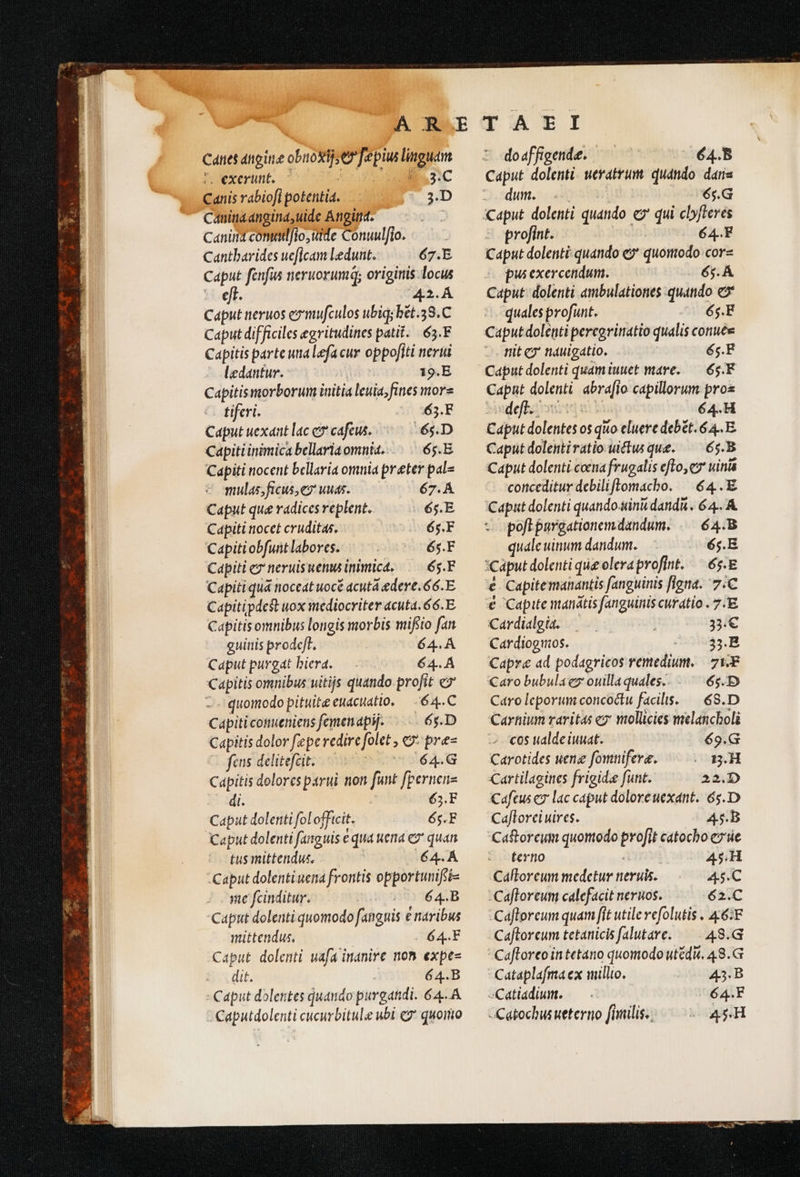 ARETAEI
Canes anginæ obnoxij, & sæpius linguam
exerunt. 3.C
Canis rabiosi potentia. 3.D
Canina angina, uide Angina.
Canina conuulsio, uide Conuulsio.
Cantharides uesicam lædunt. 67.E
Caput sensus neruorumq; originis locus
est. 42.A
Caput neruos & musculos ubiq; hêt. 38.C
Caput difficiles ægritudines patit. 63.F
Capitis parte una læsa cur oppositi nerui
lædantur. 19.E
Capitis morborum initia leuia, fines mor=
tiferi. 63.F
Caput uexant lac & caseus. 65.D
Capiti inimica bellaria omnia. 65.E
Capiti nocent bellaria omnia præter pal=
mulas, ficus, & uuas. 67.A
Caput quæ radices replent. 65.E
Capiti nocet cruditas. 65.F
Capiti obsunt labores. 65.F
Capiti & neruis uenus inimica. 65.F
Capiti quã noceat uocẽ acutã edere. 66.E
Capiti pdest uox mediocriter acuta. 66.E
Capitis omnibus longis morbis mißio san
guinis prodest. 64.A
Caput purgat hiera. 64.A
Capitis omnibus uitijs quando prosit &
quomodo pituitæ euacuatio. 64.C
Capiti conueniens semen apij. 65.D
Capitis dolor sæpe redire solet, & præ=
sens delitescit. 64.G
Capitis dolores parui non sunt spernen=
di. 63.F
Caput dolenti sol officit. 65.F
Caput dolenti sanguis è qua uena & quan
tus mittendus. 64.A
Caput dolenti uena frontis opportunißi=
me scinditur. 64.B
Caput dolenti quomodo sanguis è naribus
mittendus. 64.F
Caput dolenti uasa inanire non expe=
dit. 64.B
Caput dolentes quando purgandi. 64.A
Caput dolenti cucurbitulæ ubi & quomo
do affigendæ. 64.B
Caput dolenti ueratrum quando dan=
dum. 65.G
Caput dolenti quando & qui clysteres
prosint. 64.F
Caput dolenti quando & quomodo cor=
pus exercendum. 65.A
Caput dolenti ambulationes quando &
quales prosunt. 65.F
Caput dolenti peregrinatio qualis conue=
nit & nauigatio. 65.F
Caput dolenti quàm iuuet mare. 65.F
Caput dolenti abrasio capillorum pro=
dest. 64.H
Caput dolentes os quõ eluere debẽt. 64.E
Caput dolenti ratio uictus quæ. 65.B
Caput dolenti cœna frugalis esto, & uinũ
conceditur debili stomacho. 64.E
Caput dolenti quando uinũ dandũ. 64.A
post purgationem dandum. 64.B
quale uinum dandum. 65.E
Caput dolenti quæ olera prosint. 65.E
è Capite manantis sanguinis signa. 7.C
è Capite manãtis sanguinis curatio. 7.E
Cardialgia. 33.C
Cardiogmos. 33.E
Capræ ad podagricos remedium. 71.F
Caro bubula & ouilla quales. 65.D
Caro leporum concoctu facilis. 68.D
Carnium raritas & mollicies melancholi
cos ualde iuuat. 69.G
Carotides uenæ somniferæ. 13.H
Cartilagines frigidæ sunt. 22.D
Caseus & lac caput dolore uexant. 65.D
Castorei uires. 45.B
Castoreum quomodo prosit catocho & ue
terno 45.H
Castoreum medetur neruis. 45.C
Castoreum calefacit neruos. 62.C
Castoreum quam sit utile resolutis. 46.F
Castoreum tetanicis salutare. 48.G
Castoreo in tetano quomodo utẽdũ. 48.G
Cataplasma ex millio. 43.B
Catiadium. 64.F
Catochus ueterno similis. 45.H